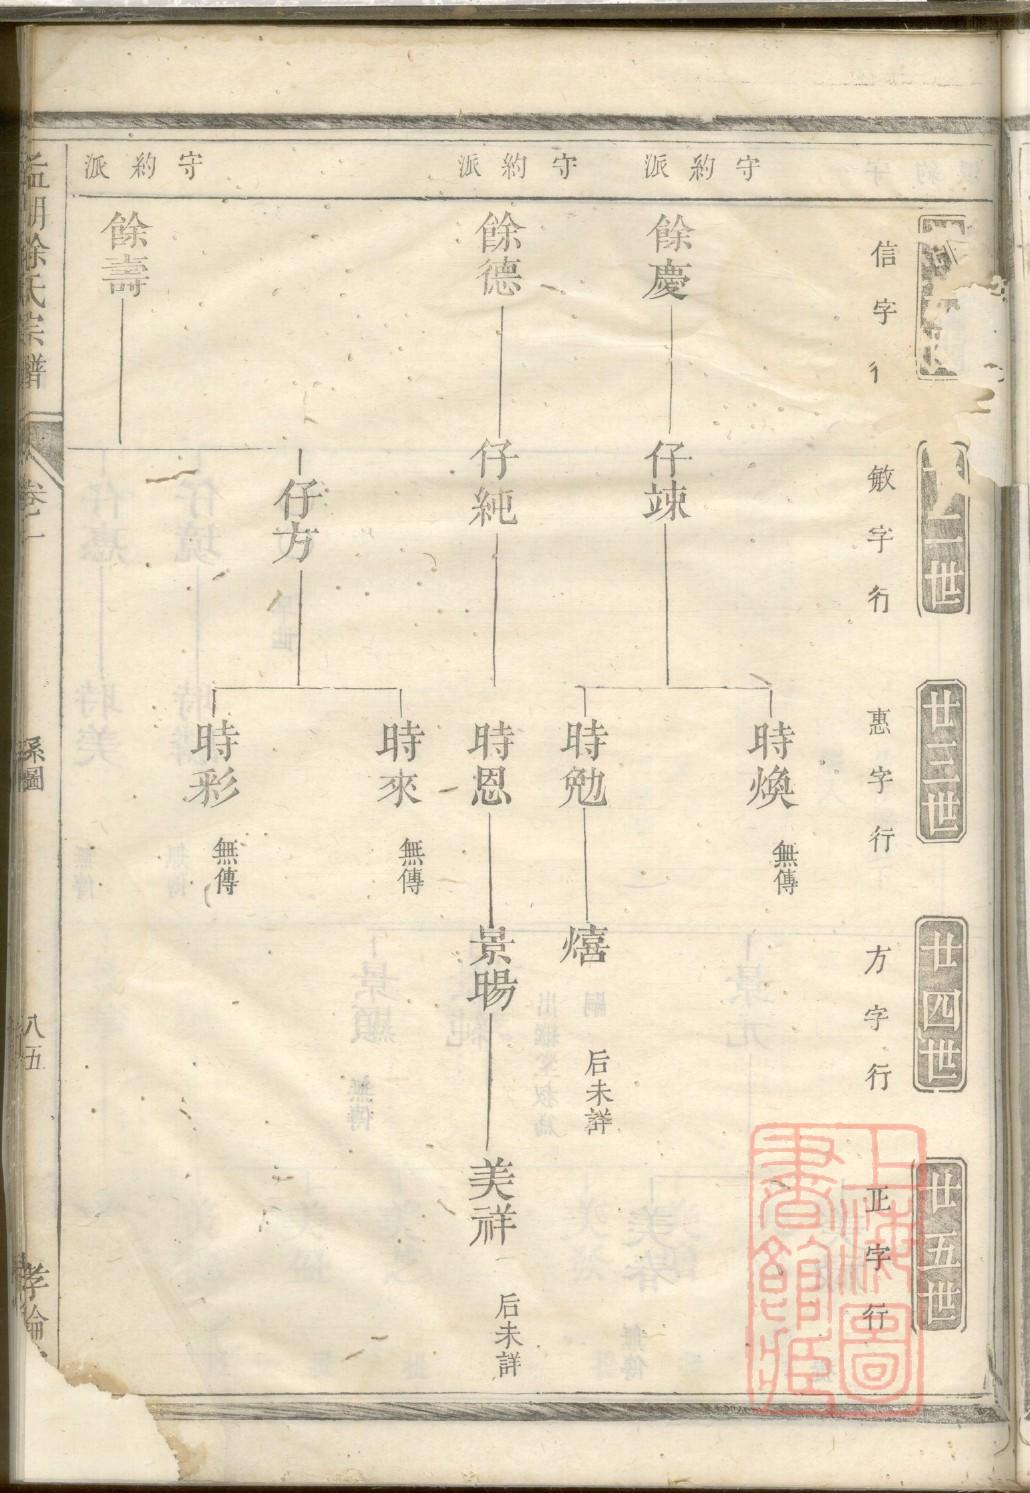 守約派
守約派
守約派
信字行
餘慶
餘德
餘壽
世
敏字行
仔竦
仔純
仔方
廿三世
惠字行
時煥
無傳
時勉
時恩
時來
無傳
時彩
無傳
廿四世
方字行
熺
后未詳
景暘
廿五世
正字行
美祥
后未詳
徐氏宗譜
卷
系圖
八五
孝倫
上海圖書館藏